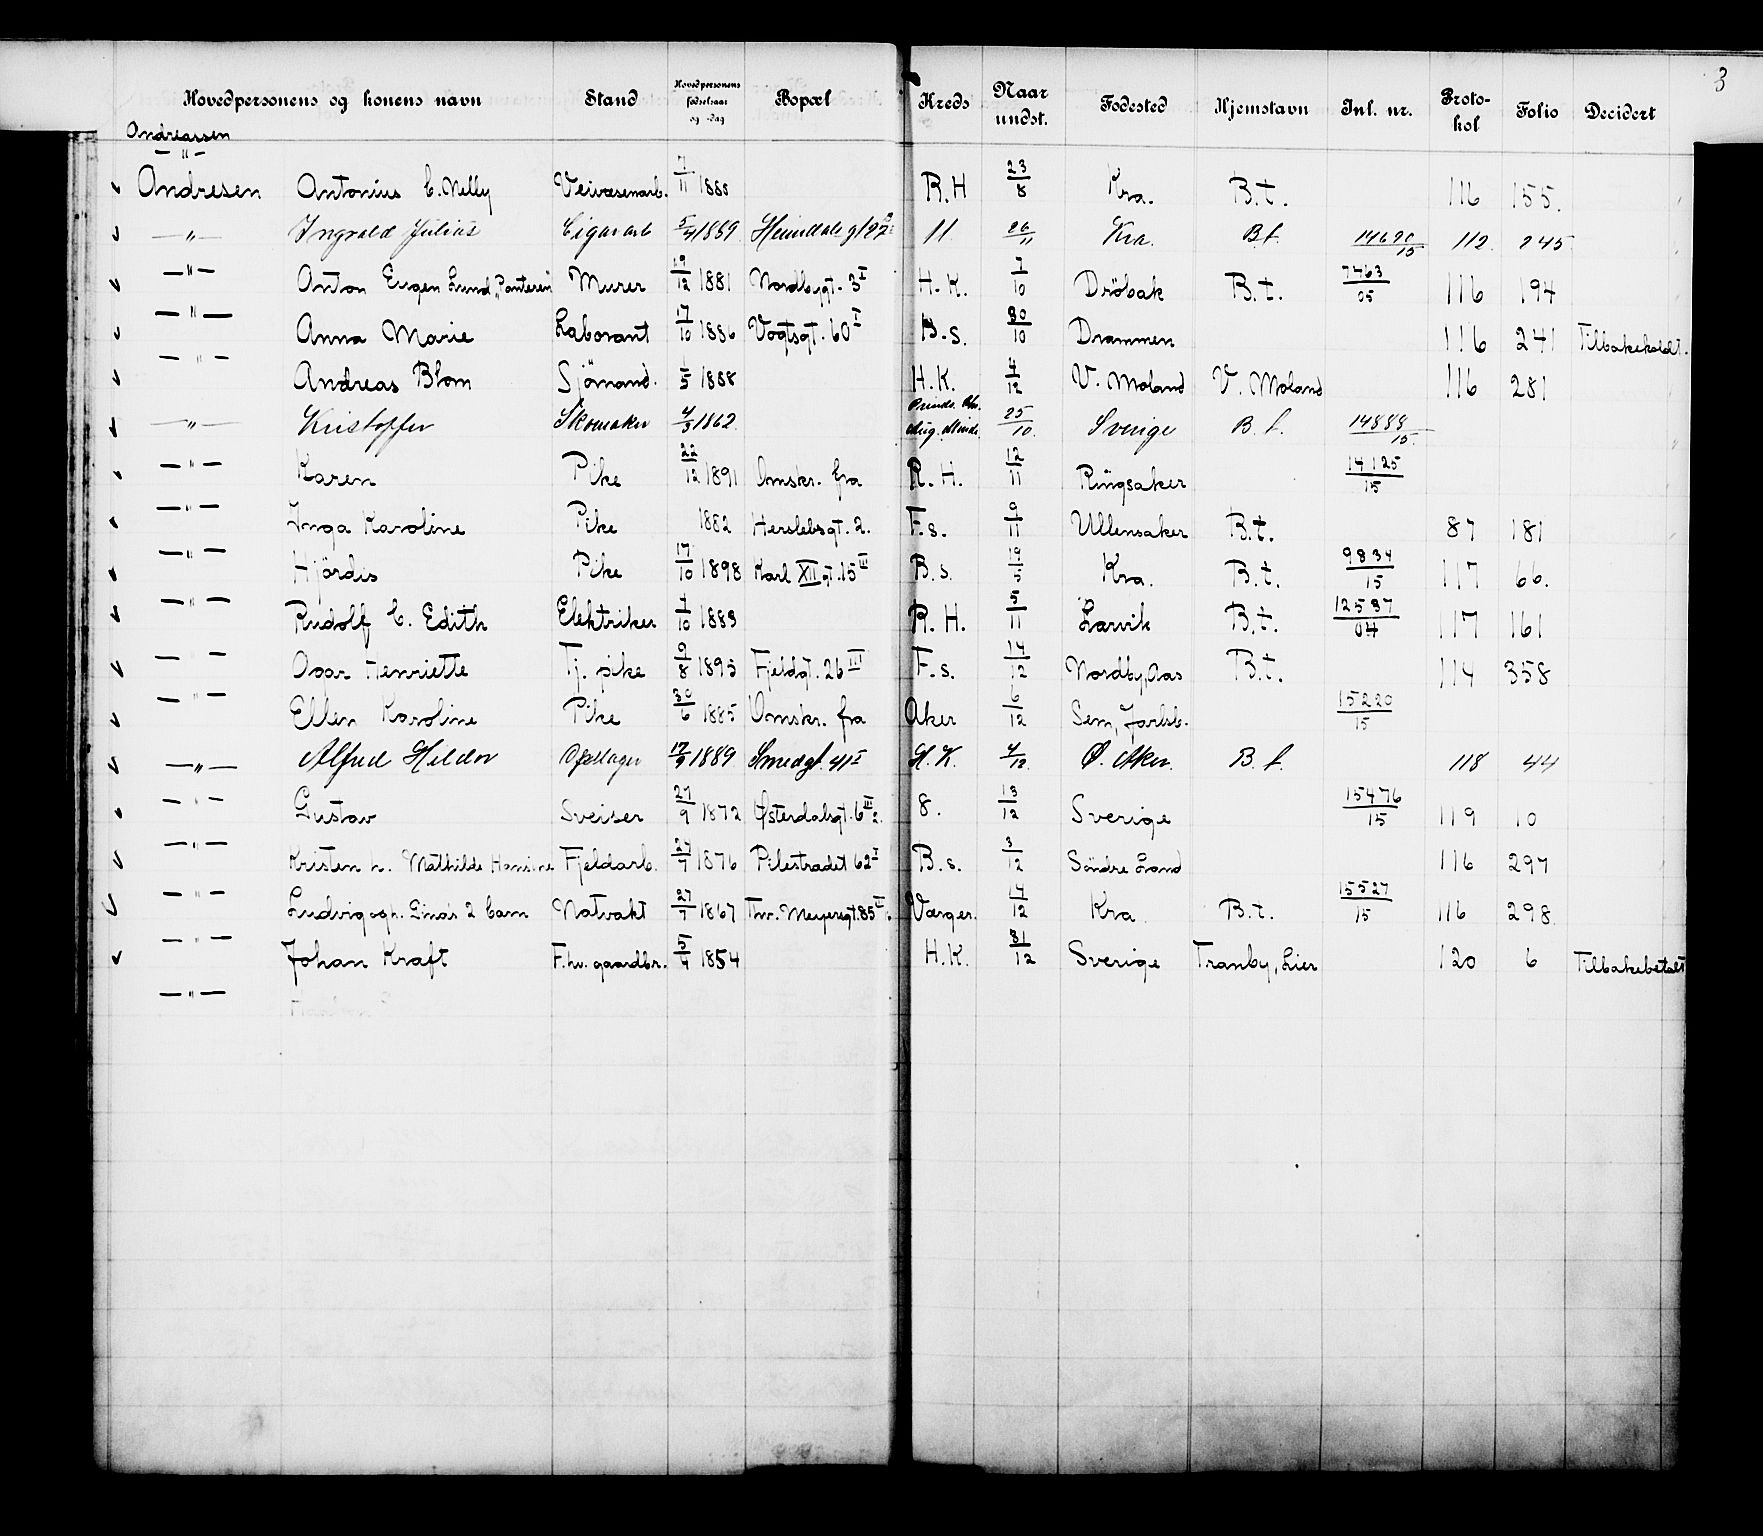 3
Hovedpersonens og konens navn Stand Hovedpersonens fødselsaar og -dag Bopæl Kreds Naar undst. Fødested Hjemstavn Inl. nr. Protokol Folio Decidert
Andreassen
— " —
Andresen Antonius E. Nelly Veivæsenarb. 7/11 1888 R.H 23/8 Kra. B.t. 116 155.
— " — Ingvald Julius Cigararb 5/4 1889 Heimdalsgt 27 11 26/11 Kra. B.t. 14690/15 112. 245
— " — Anton Eugen Lund „Panteren" Murer 19/12 1881 Nordbygt. 3 I H.K. 7/10 Dröbak B.t. 7463/05 116 194
— " — Anna Marie Laborant 17/10 1886 Vogtsgt. 60 I B.s. 30/10 Drammen 116 241 Tilbakekaldt.
— " — Andreas Blom Sjömand. 1/5 1888 H.K. 4/12 V. Moland V. Moland 116 281
— " — Kristoffer Skomaker 4/3 1862. Aug. Minde. 25/10. Sverige B.t. 14888/15.
— " — Karen Pike 22/12 1891 Omskr. fra R.H. 12/11 Ringsaker 14125/15
— " — Inga Karoline Pike 1882 Herslebsgt. 2. F.s. 9/11 Ullensaker B.t. 87 181
— " — Hjördis Pike 17/10 1898 Karl XII gt. 15 III B.s. 19/5 Kra. B.t. 9834/15 117 66.
— " — Rudolf E. Edith Elektriker 4/10 1883 R.H. 5/11 Larvik B.t. 12537/04 117 161
— " — Henriette Tj. pike 9/8 1895 Fjeldgt. 26 III F.s. 14/12 Nordby, Aas B.t. 114 358
— " — Ellen Karoline Pike 30/6 1885 Omskr. fra Aker 6/12 Sem, Jarlsb. 15220/15
— " — Alfred Heldor Opsl.ager 17/9 1889 Smedgt. 41 I H.K. 4/12. Ø. Aker. B.t. 118 44
— " — Gustav Sveiser 27/9 1872 Østerdalsgt. 6 III 2. 8. 13/12 Sverige 15476/15 119 10
— " — Kristen h. Mathilde Hansine Fjeldarb. 27/7 1876 Pilestrædet 62 I B.s. 3/12 Söndre Land 116 297
— " — Ludvig og h. Lina's 2 barn Natvakt 27/7 1867 Thv. Meyersgt. 85 II Værger. 14/12 Kra. B.t. 15527/15 116 298.
— " — Johan Kraft F.hv. gaardbr. 5/4 1854 H.K. 31/12 Sverige Tranby, Lier 120 6 Tilbakebetalt
— " —